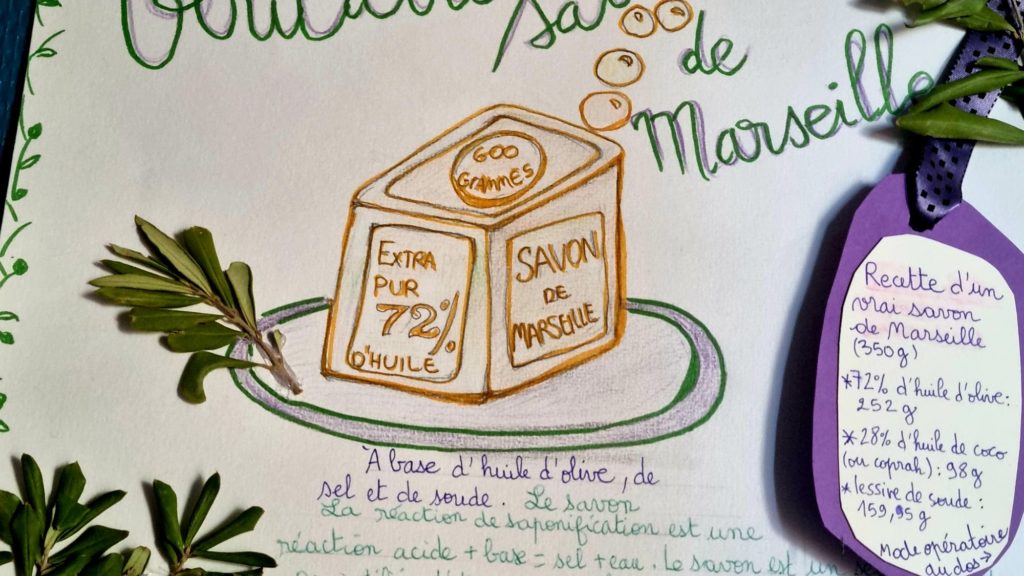 de
Marseille
600
GRAMMES
EXTRA
PUR
72%
D'HUILE
SAVON
DE
MARSEILLE
À base d'huile d'olive, de
sel et de soude. Le savon
La réaction de saponification est une
réaction acide + base = sel + eau. Le savon est un
Recette d'un
vrai savon
de Marseille
(350g)
*72% d'huile d'olive:
252 g
*28% d'huile de coco
(ou coprah): 98g
*lessive de soude:
159,95g
Mode opératoire
au dos→